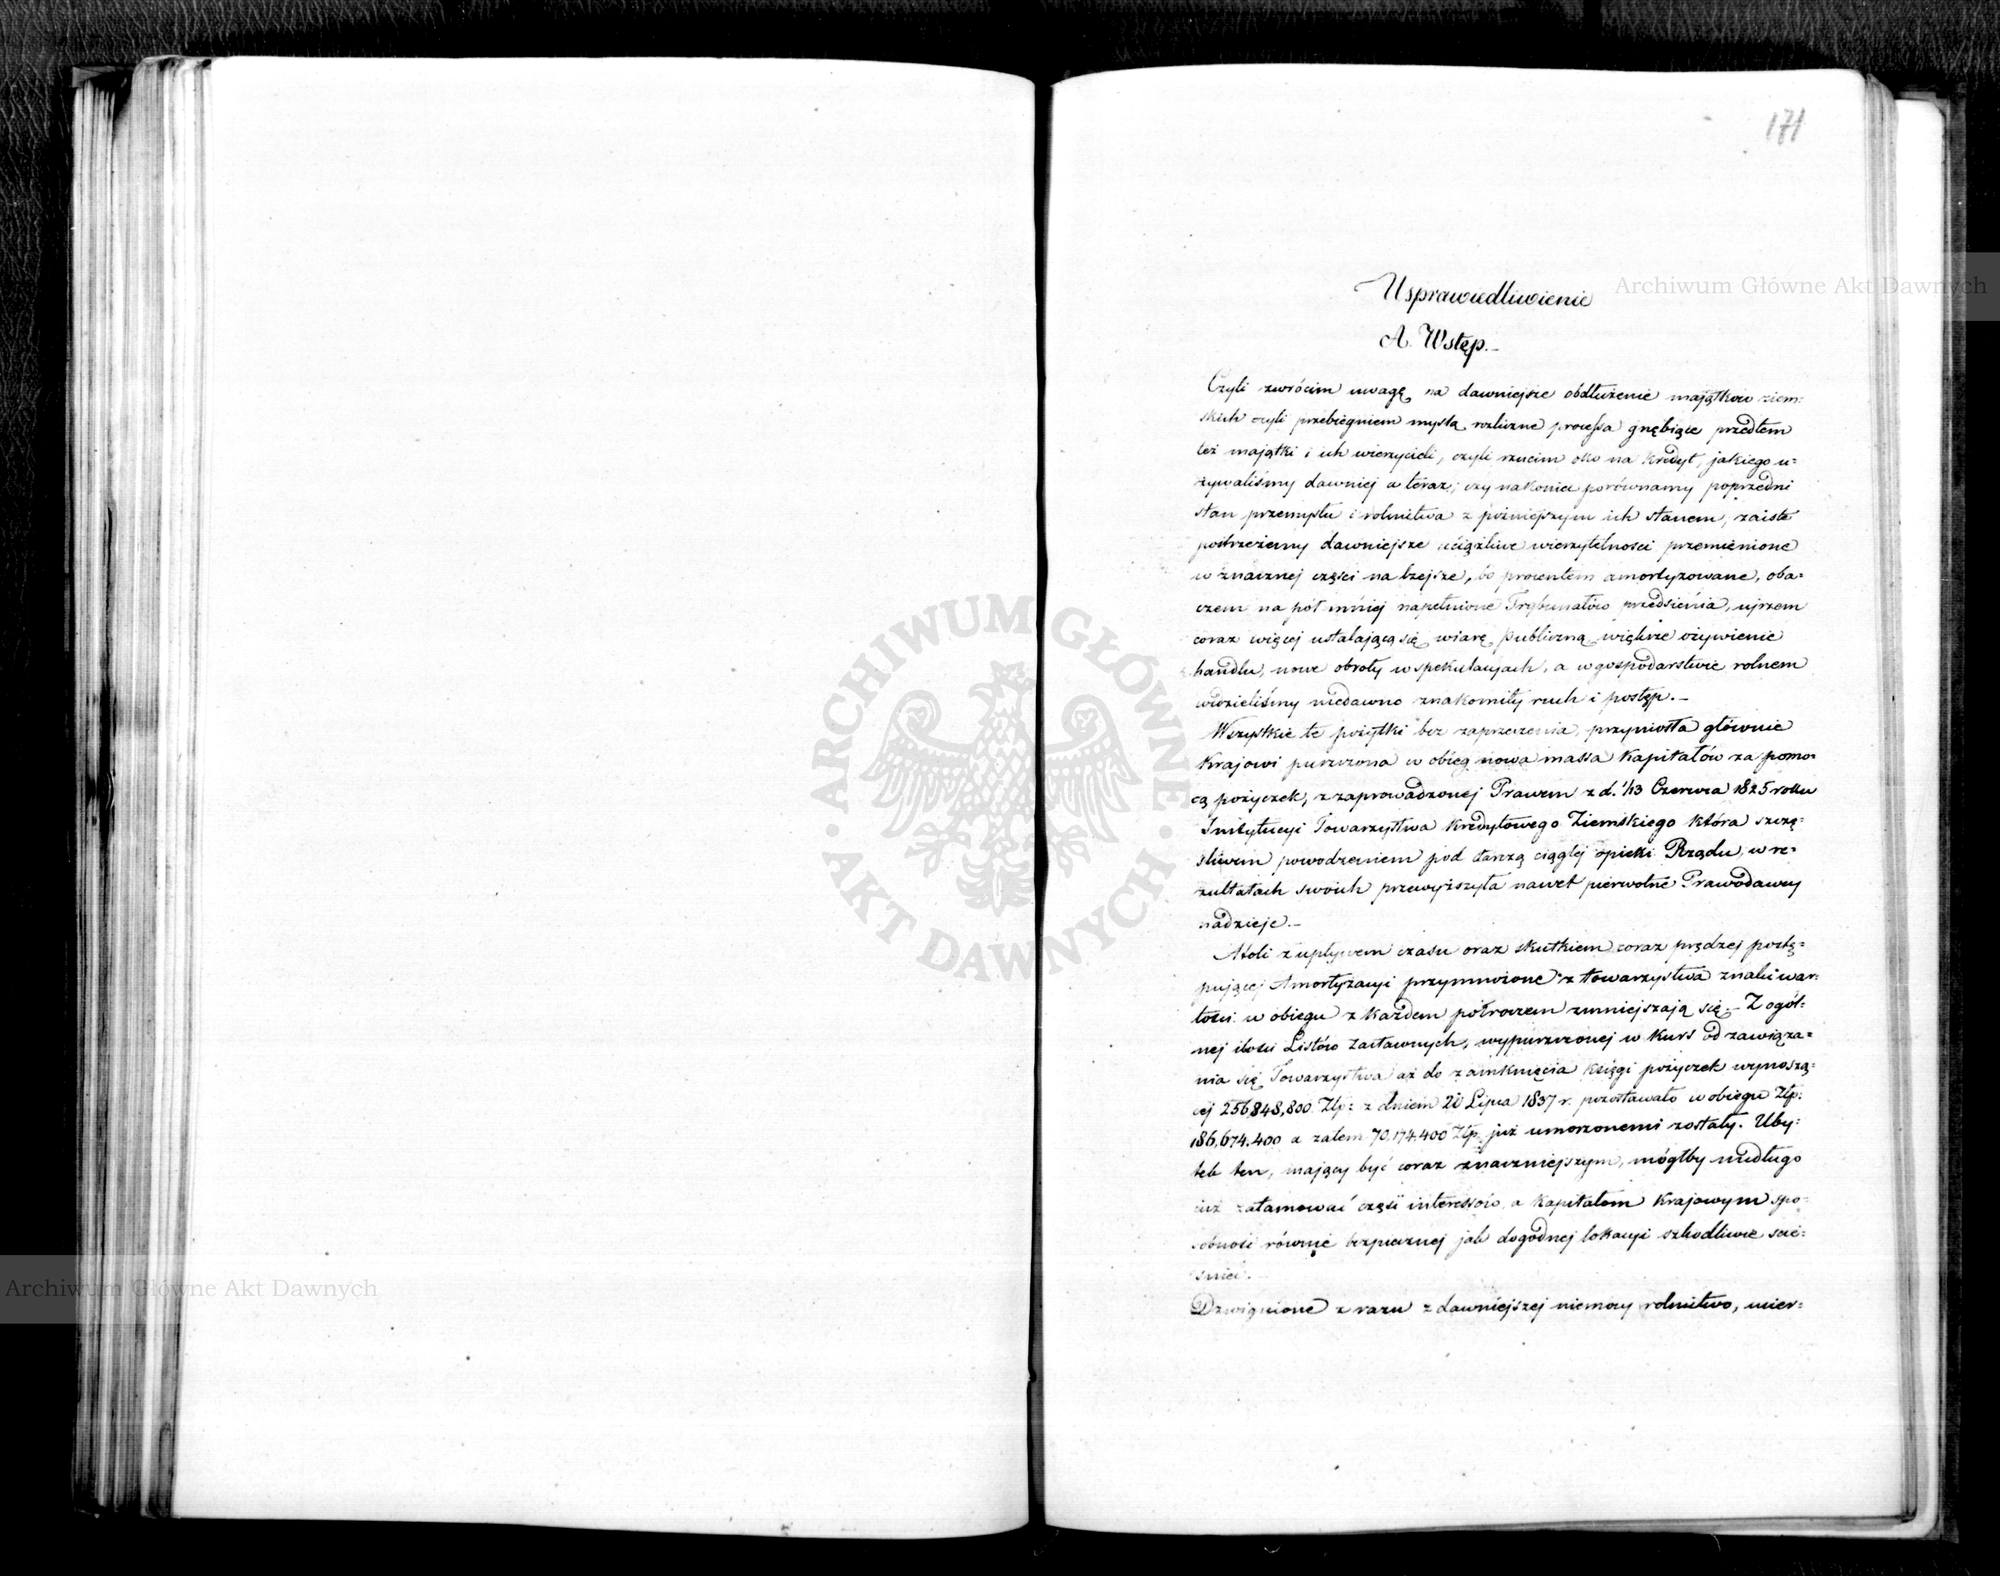 171
Usprawiedliwienie
A. Wstęp.-
Czyli zwrócim uwagę na dawniejsze obdłużenie majątkow ziem:
skich czyli przebiegniem myslą rozliczne processa gnębiące przedtem
też majątki i ich wierzycieli, czyli rzucim oko na kredyt, jakiego u:
żywaliśmy dawniej a teraz; czy nakoniec porównamy poprzedni
stan przemysłu i rolnictwa z pożniejszym ich stanem, zaiste
postrzeżemy dawniejsze uciążliwe wierzytelnosci przemienione
w znacznej części na lżejsze, bo procentem amortyzowane, oba:
czem na pół mniej napełnione Trybunałów przedsienia, ujrzem
coraz więcej ustalającą się wiarę publiczną większe ożywienie
handlu, nowe obroty w spekulacyach, a w gospodarstwie rolnem
widzieliśmy niedawno znakomity ruch i postęp.-
Wszystkie te pożytki bez zaprzeczenia, przyniosła głównie
Krajowi puszczona w obieg nowa massa Kapitałów za pomo:
cą pożyczek, z zaprowadzonej Prawem z d. 1/13 Czerwca 1825 roku
Instytucyi Towarzystwa Kredytowego Ziemskiego która szczę:
śliwem powodzeniem pod tarczą ciągłej opieki Rządu, w re:
zultatach swoich przewyższyła nawet pierwotne Prawodawcy
nadzieje.-
Atoli z upływem czasu oraz skutkiem coraz prędzej postę:
pującej Amortyzacyi przymnożone z towarzystwa znaki war:
tości w obiegu z każdem półroczem zmniejszają się.- Z ogól:
nej ilości Listów Zastawnych, wypuszczonej w kurs od zawiąza:
nia się Towarzystwa aż do zamknięcia księgi pożyczek wynoszą:
cej 256,848,800 Złp: z dniem 20 Lipca 1837 r. pozostawało w obiegu Złp:
186,674,400 a zatem 70,174,400 Złp. już umorzonemi zostały. Uby:
tek ten, mający być coraz znaczniejszym, mógłby niedługo
już załamować części interessów a kapitałom Krajowym spo:
sobność równie bezpiecznej jak dogodnej lokacyi szkodliwie scie:
śnieć.
Dzwignione z razu z dawniejszej niemocy rolnictwo, mier:
ARCHIWUM GŁÓWNE AKT DAWNYCH
Archiwum Główne Akt Dawnych
Archiwum Główne Akt Dawnych